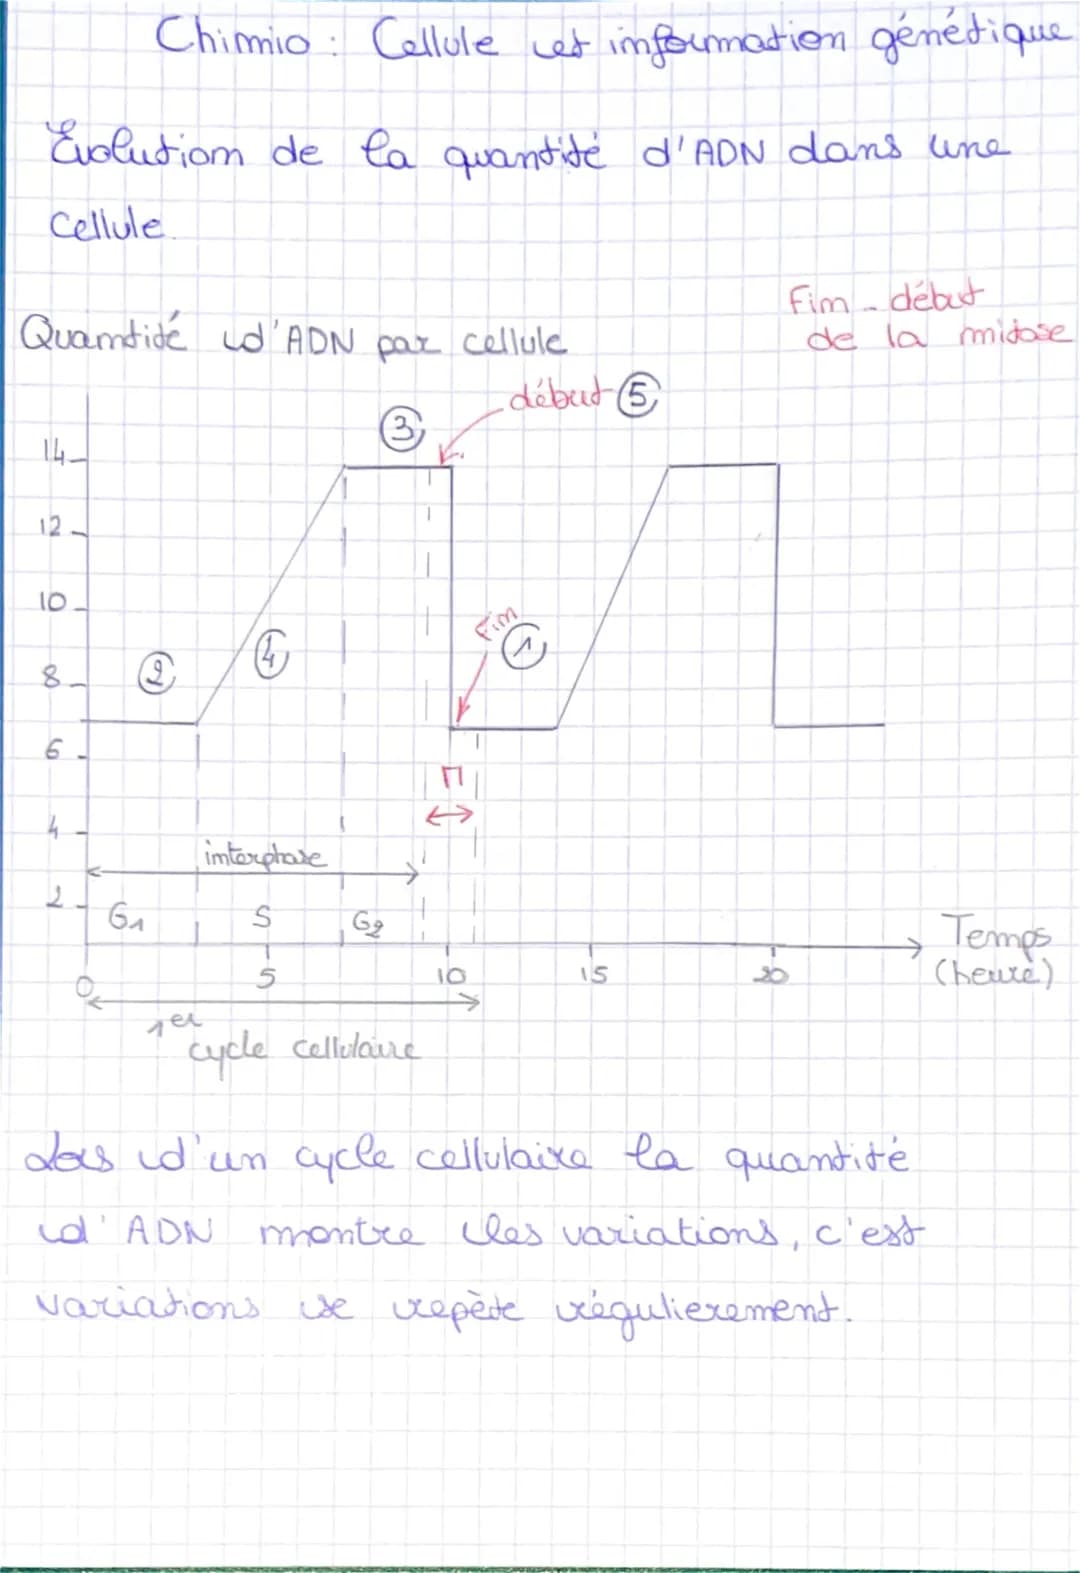 Chimio : Cellule et information génétique
Évolution de la quantité d'ADN dans une
cellule.
Fin - début
de la mitose
Quantité d'ADN par cellule
début ⑤
③
14
12
10
fin
①
④
②
8
6
M
4
interphase
2
G1 S G2
Temps
(heure)
0 5 10 15 20
1er
cycle cellulaire
Lors d'un cycle cellulaire la quantité
d'ADN montre des variations, c'est
variations se repète régulierement.